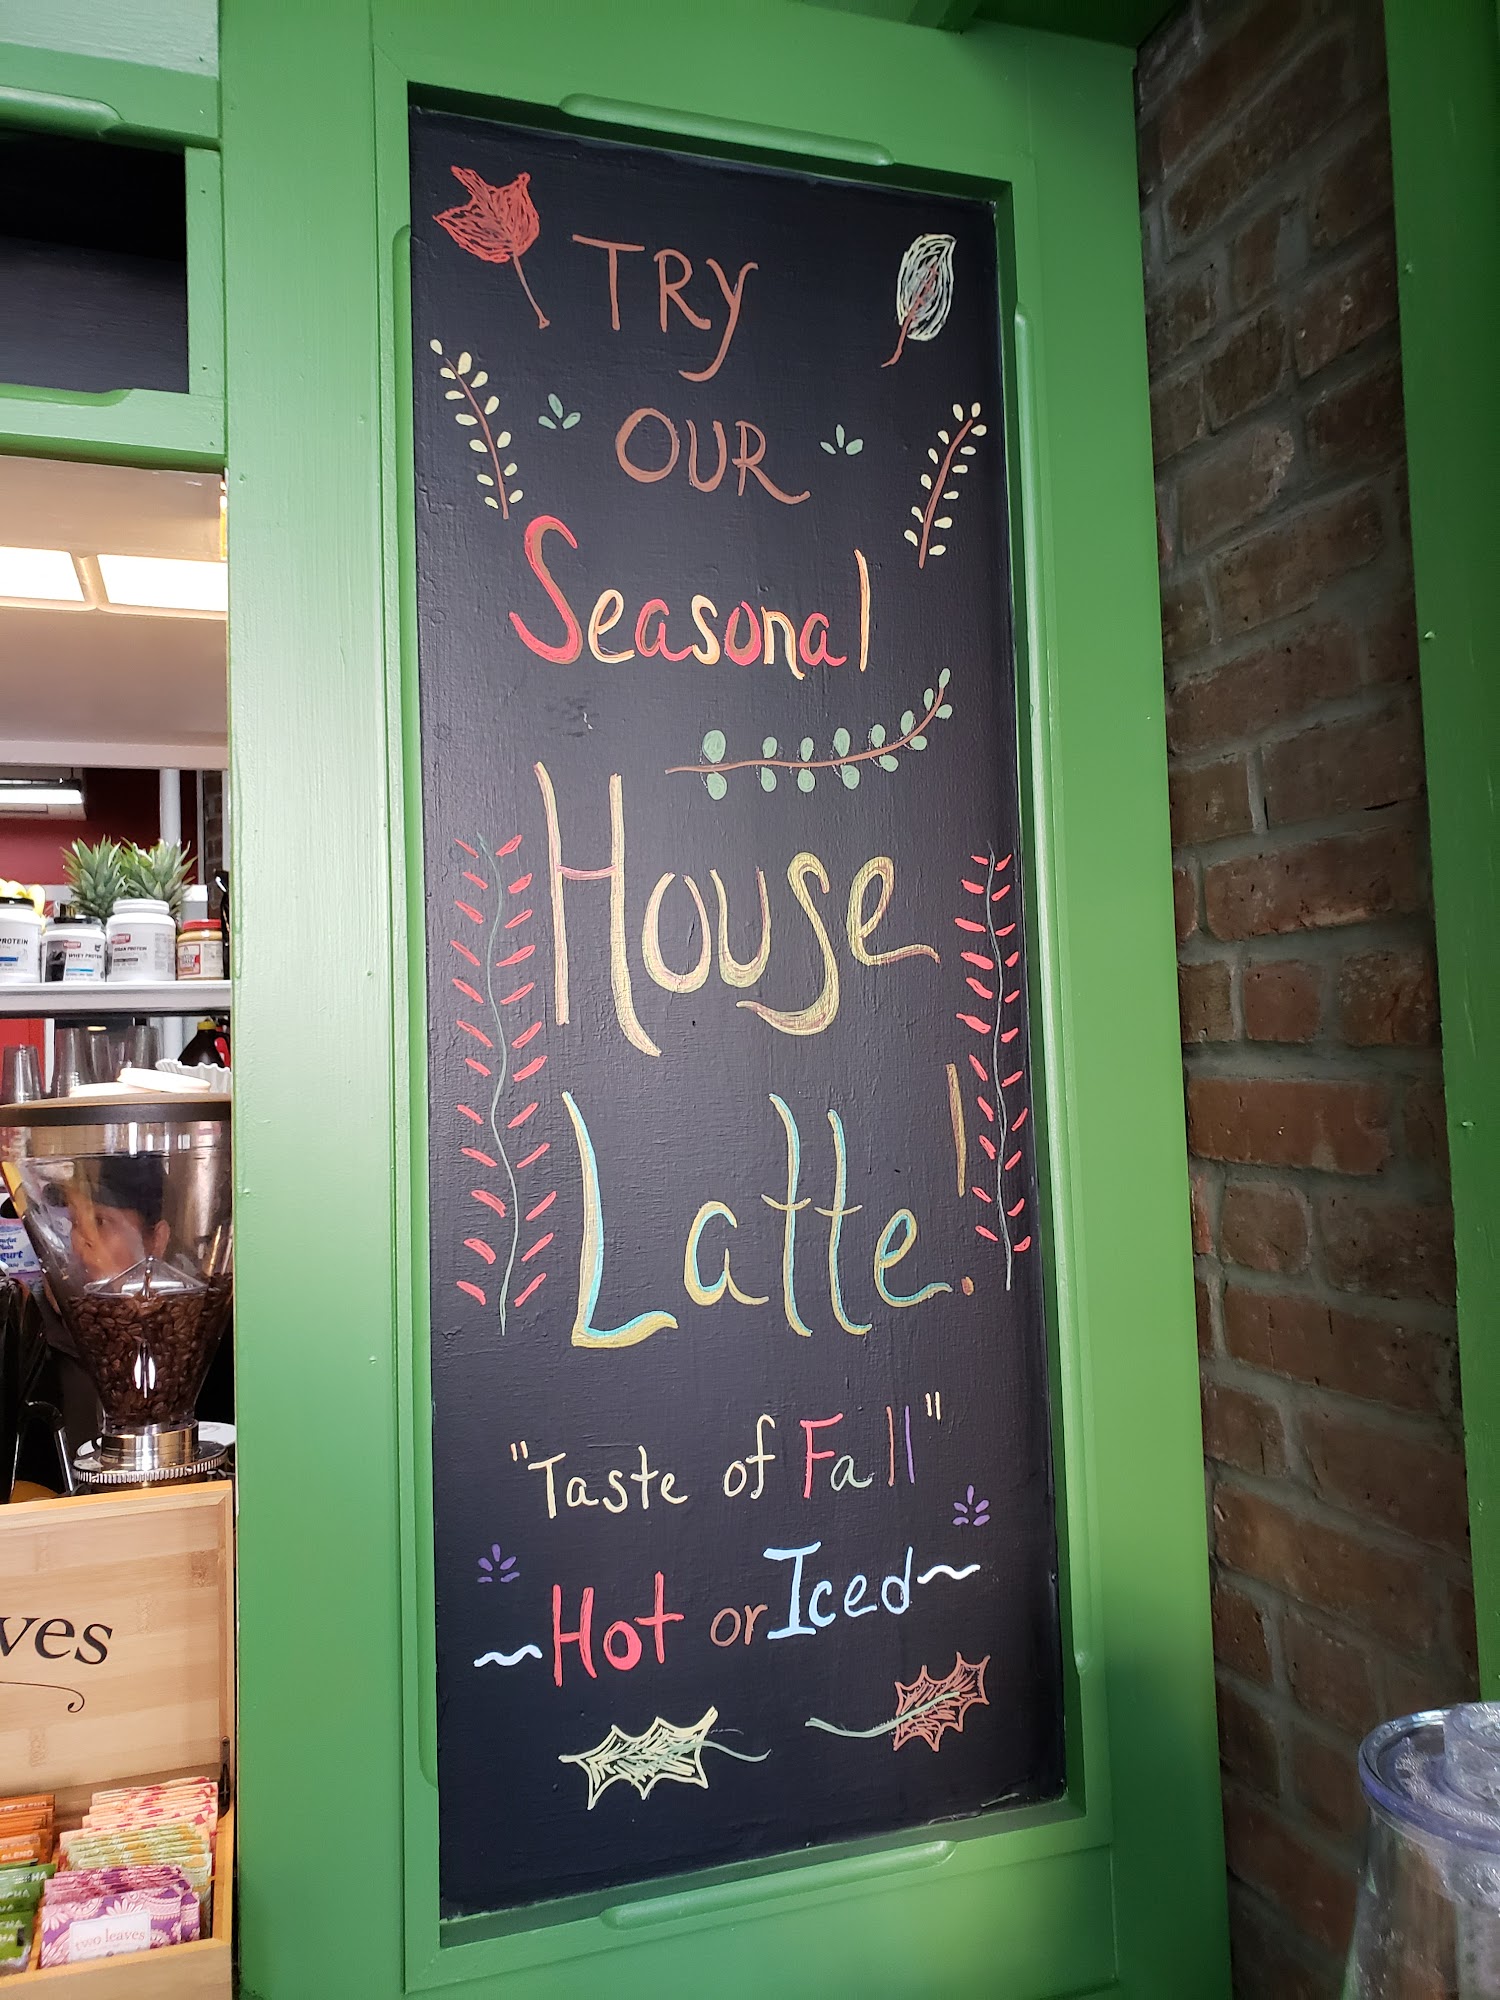 TRY
OUR
Seasonal
House
Latte!
"Taste of Fall"
~Hot or Iced~
PROTEIN
WHEY PROTEIN
ves
two leaves